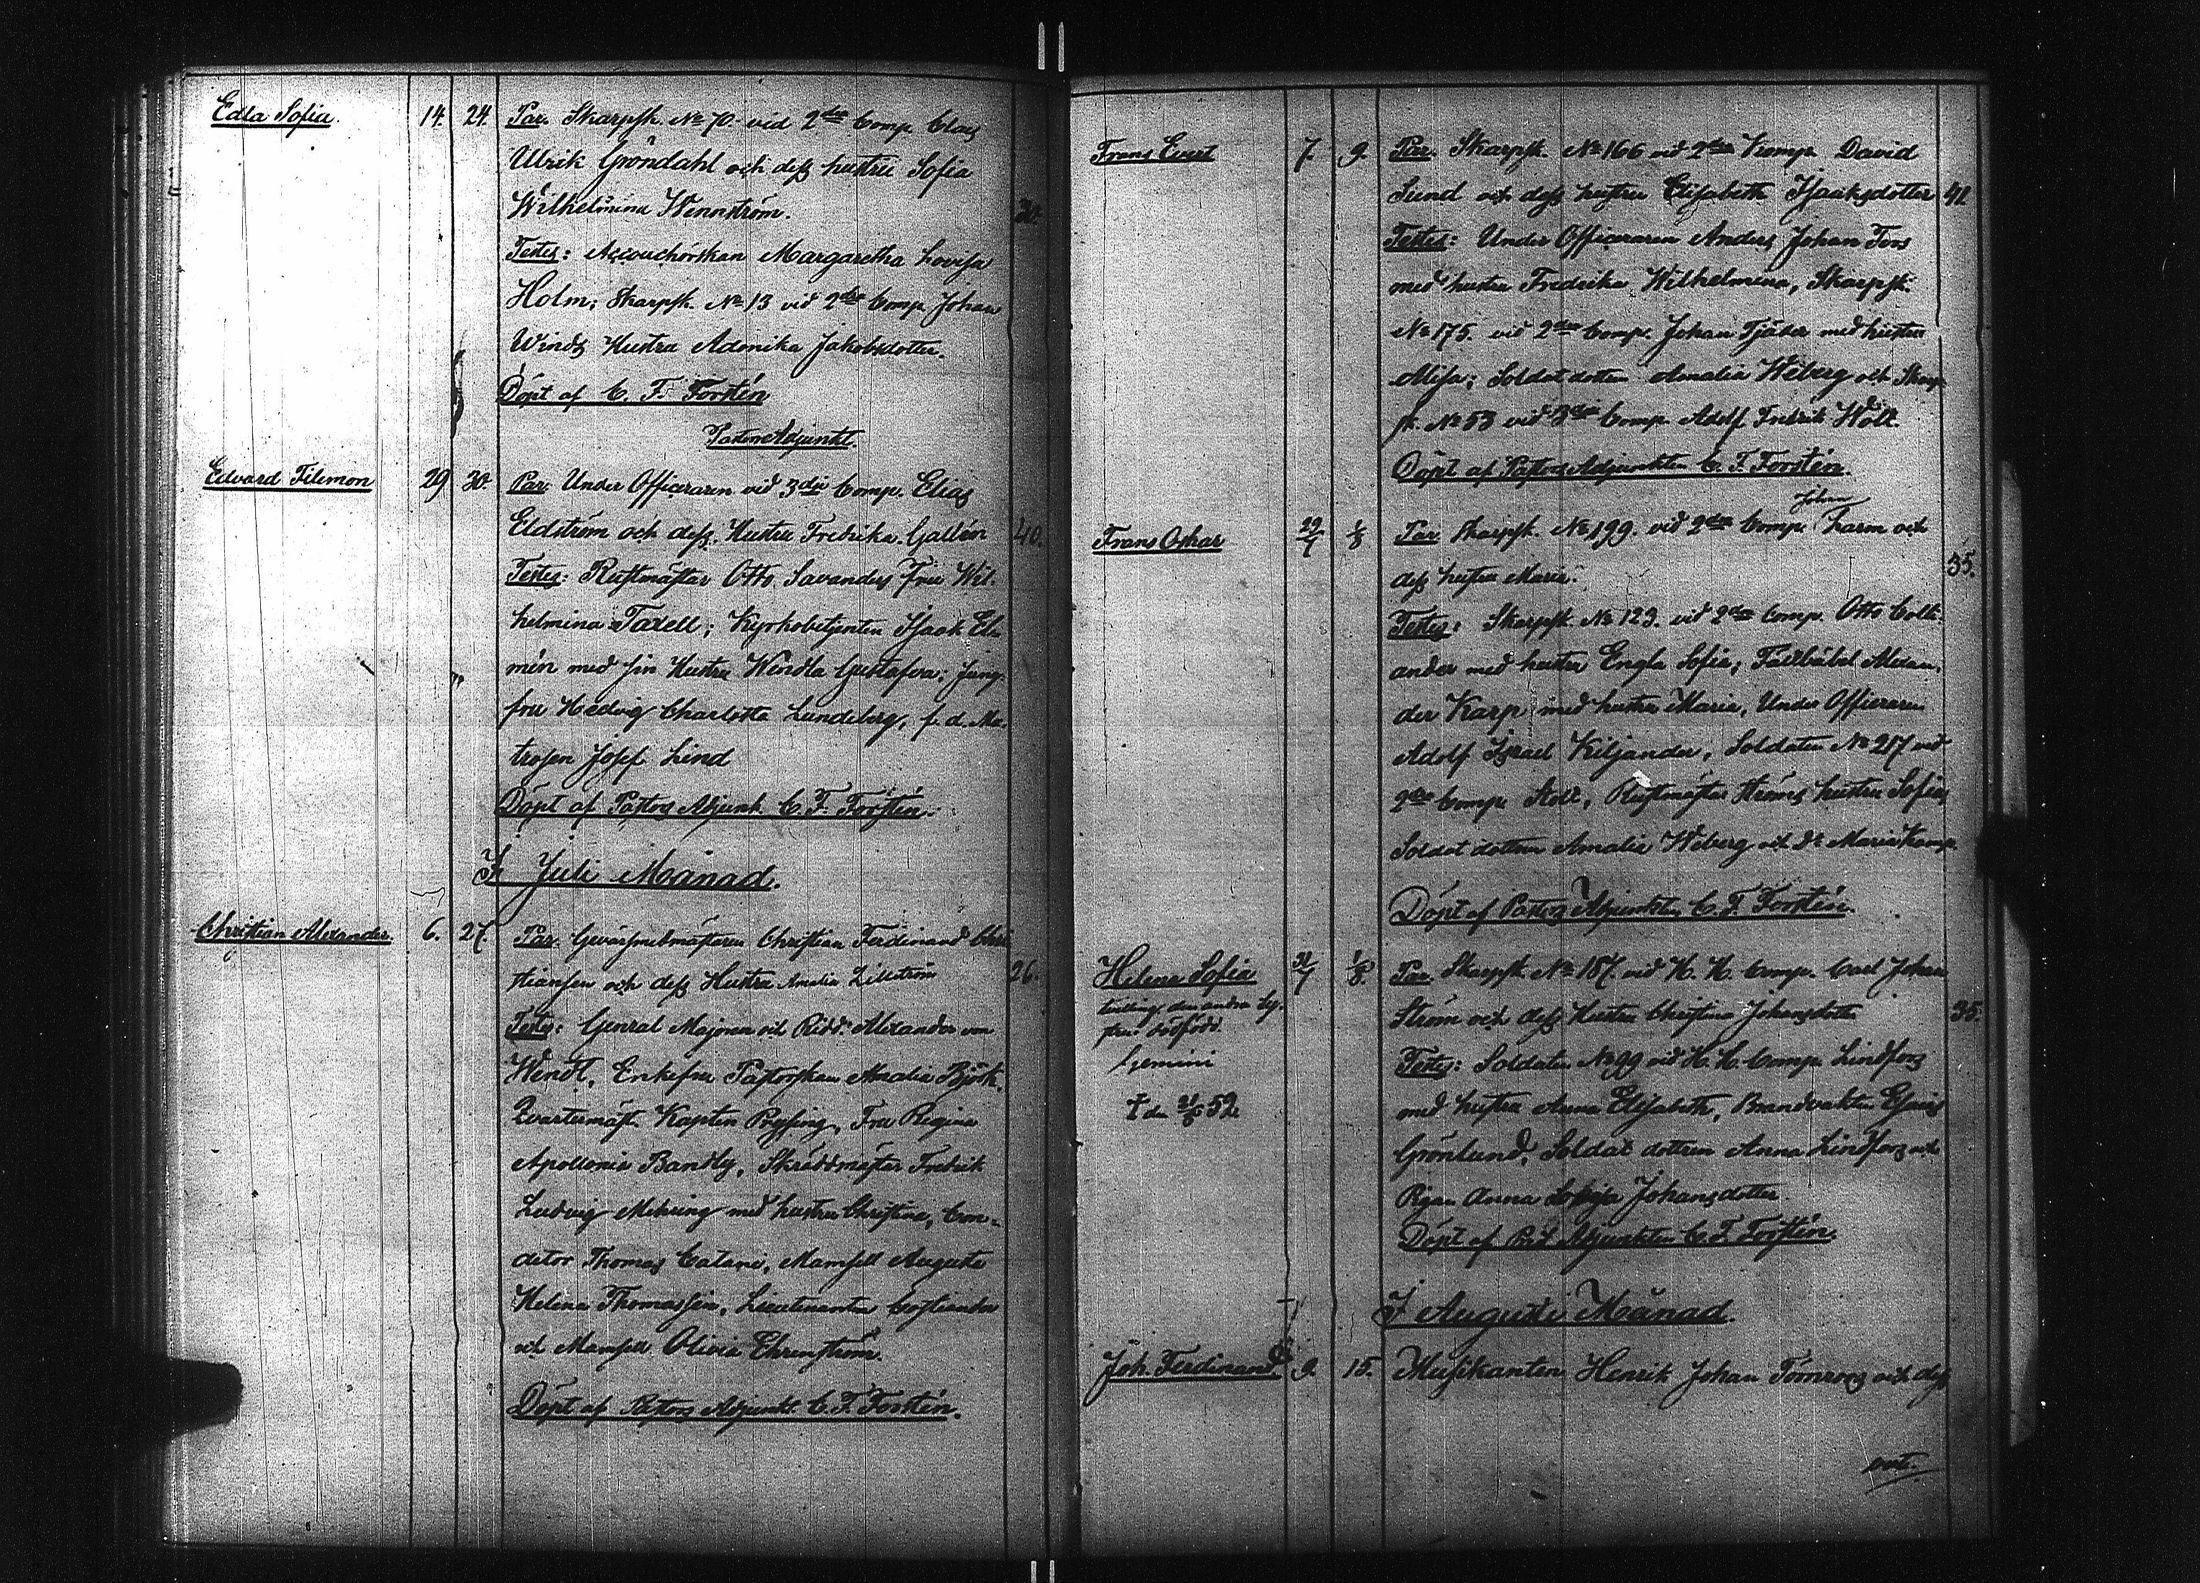 Edla Sofia. 14. 24. Par. Skarpsk. No 70. vid 2dra Comp. Claes
Ulrik Gröndahl och dess hustru Sofia
Wilhelmina Wennström. 30.
Testes: Accouchörskan Margaretha Lovisa
Holm; Skarpsk. No 13 vid 2dra Comp. Johan
Winds Hustru Adonika Jakobsdotter.
Döpt af C. F. Forstén
Pastors Adjunkt.
Edvard Filemon 29 30. Par. Under Officeraren vid 3dje Comp. Elias
Eldström och dess Hustru Fredrika Gallén 40.
Testes: Rustmästar Otto Savanders Fru Wil-
helmina Taxell; Kyrkobetjenten Isaak Ek-
mén med sin Hustru Wendla Gustafva; Jung-
fru Hedvig Charlotta Lundeberg, f. d. Ma-
trosen Josef Lind
Döpt af Pastors Adjunk. C. F. Forstén.
I Juli Månad.
Christian Alexander 6. 27. Par. Gevärsmedmästaren Christian Ferdinand Chris
tiansen och dess Hustru Amalia Lillström 26.
Testes: General Majoren och Ridd. Alexander von
Wendt, Enkefru Pastorskan Amalia Björk.
Kvartermäst. Kapten Pryssing, Fru Regina
Apollonia Bandly, Skräddmäster Fredrik
Ludvig Mehring med hustru Christina, Con-
ditor Thomas Catani, Mamsell Augusta
Helena Thomassen, Lieutenanten
och Mamsell Olivia Ehrenström.
Döpt af Pastors Adjunkt C. F. Forstén.
Frans Evert 7. 9. Par. Skarpsk. No 166 vid 2dra Komp. David
Lund och dess hustru Elisabeth Isaaksdotter 41
Testes: Under Officeraren Anders Johan Fors
med hustru Fredrika Wilhelmina, Skarpsk.
No 175. vid 2dra Comp. Johan Tjäder med hustru
Misa; Soldat dottern Amalia Wiberg och Skarp
sk. No 53 vid 3dje Comp. Adolf Fredrik Wolt.
Döpt af Pastors Adjunkten C. F. Forstén.
Johan
Frans Oskar 29/7 1/8 Par. Skarpsk. No 199. vid 2dra Comp. Harm och
dess hustru Maria. 35.
Testes: Skarpsk. No 123. vid 2dra Comp. Otto Colli-
ander med hustru Engla Sofia; Fältväbel Alexan-
der Karp med hustru Maria, Under Officeraren
Adolf Israel Kiljander, Soldaten No 217 vid
2dra Comp. Stolt, Rustmästar Ströms hustru Sofia,
Soldat dottern Amalia Wiberg och Do Maria Karp.
Döpt af Pastors Adjunkten C. F. Forstén.
Helena Sofia 31/7 1/8. Par. Skarpsk. No 187. vid H. K. Comp. Carl Johan
tvilling, den andra
dödfödd.
Gemini
† den 52
Ström och dess Hustru Christina Johansdotter 35.
Testes: Soldaten No 99 vid H. K. Comp. Lindfors
med hustru Anna Elisabeth, Brandvakten Esaias
Grönlund, Soldat dottren Anna Lindfors och
Pigan Anna Lovisa Johansdotter.
Döpt af Past. Adjunkten C. F. Forstén.
I Augusti Månad.
Joh. Ferdinand 9. 15. Musikanten Henrik Johan Törnroos och dess
vert.